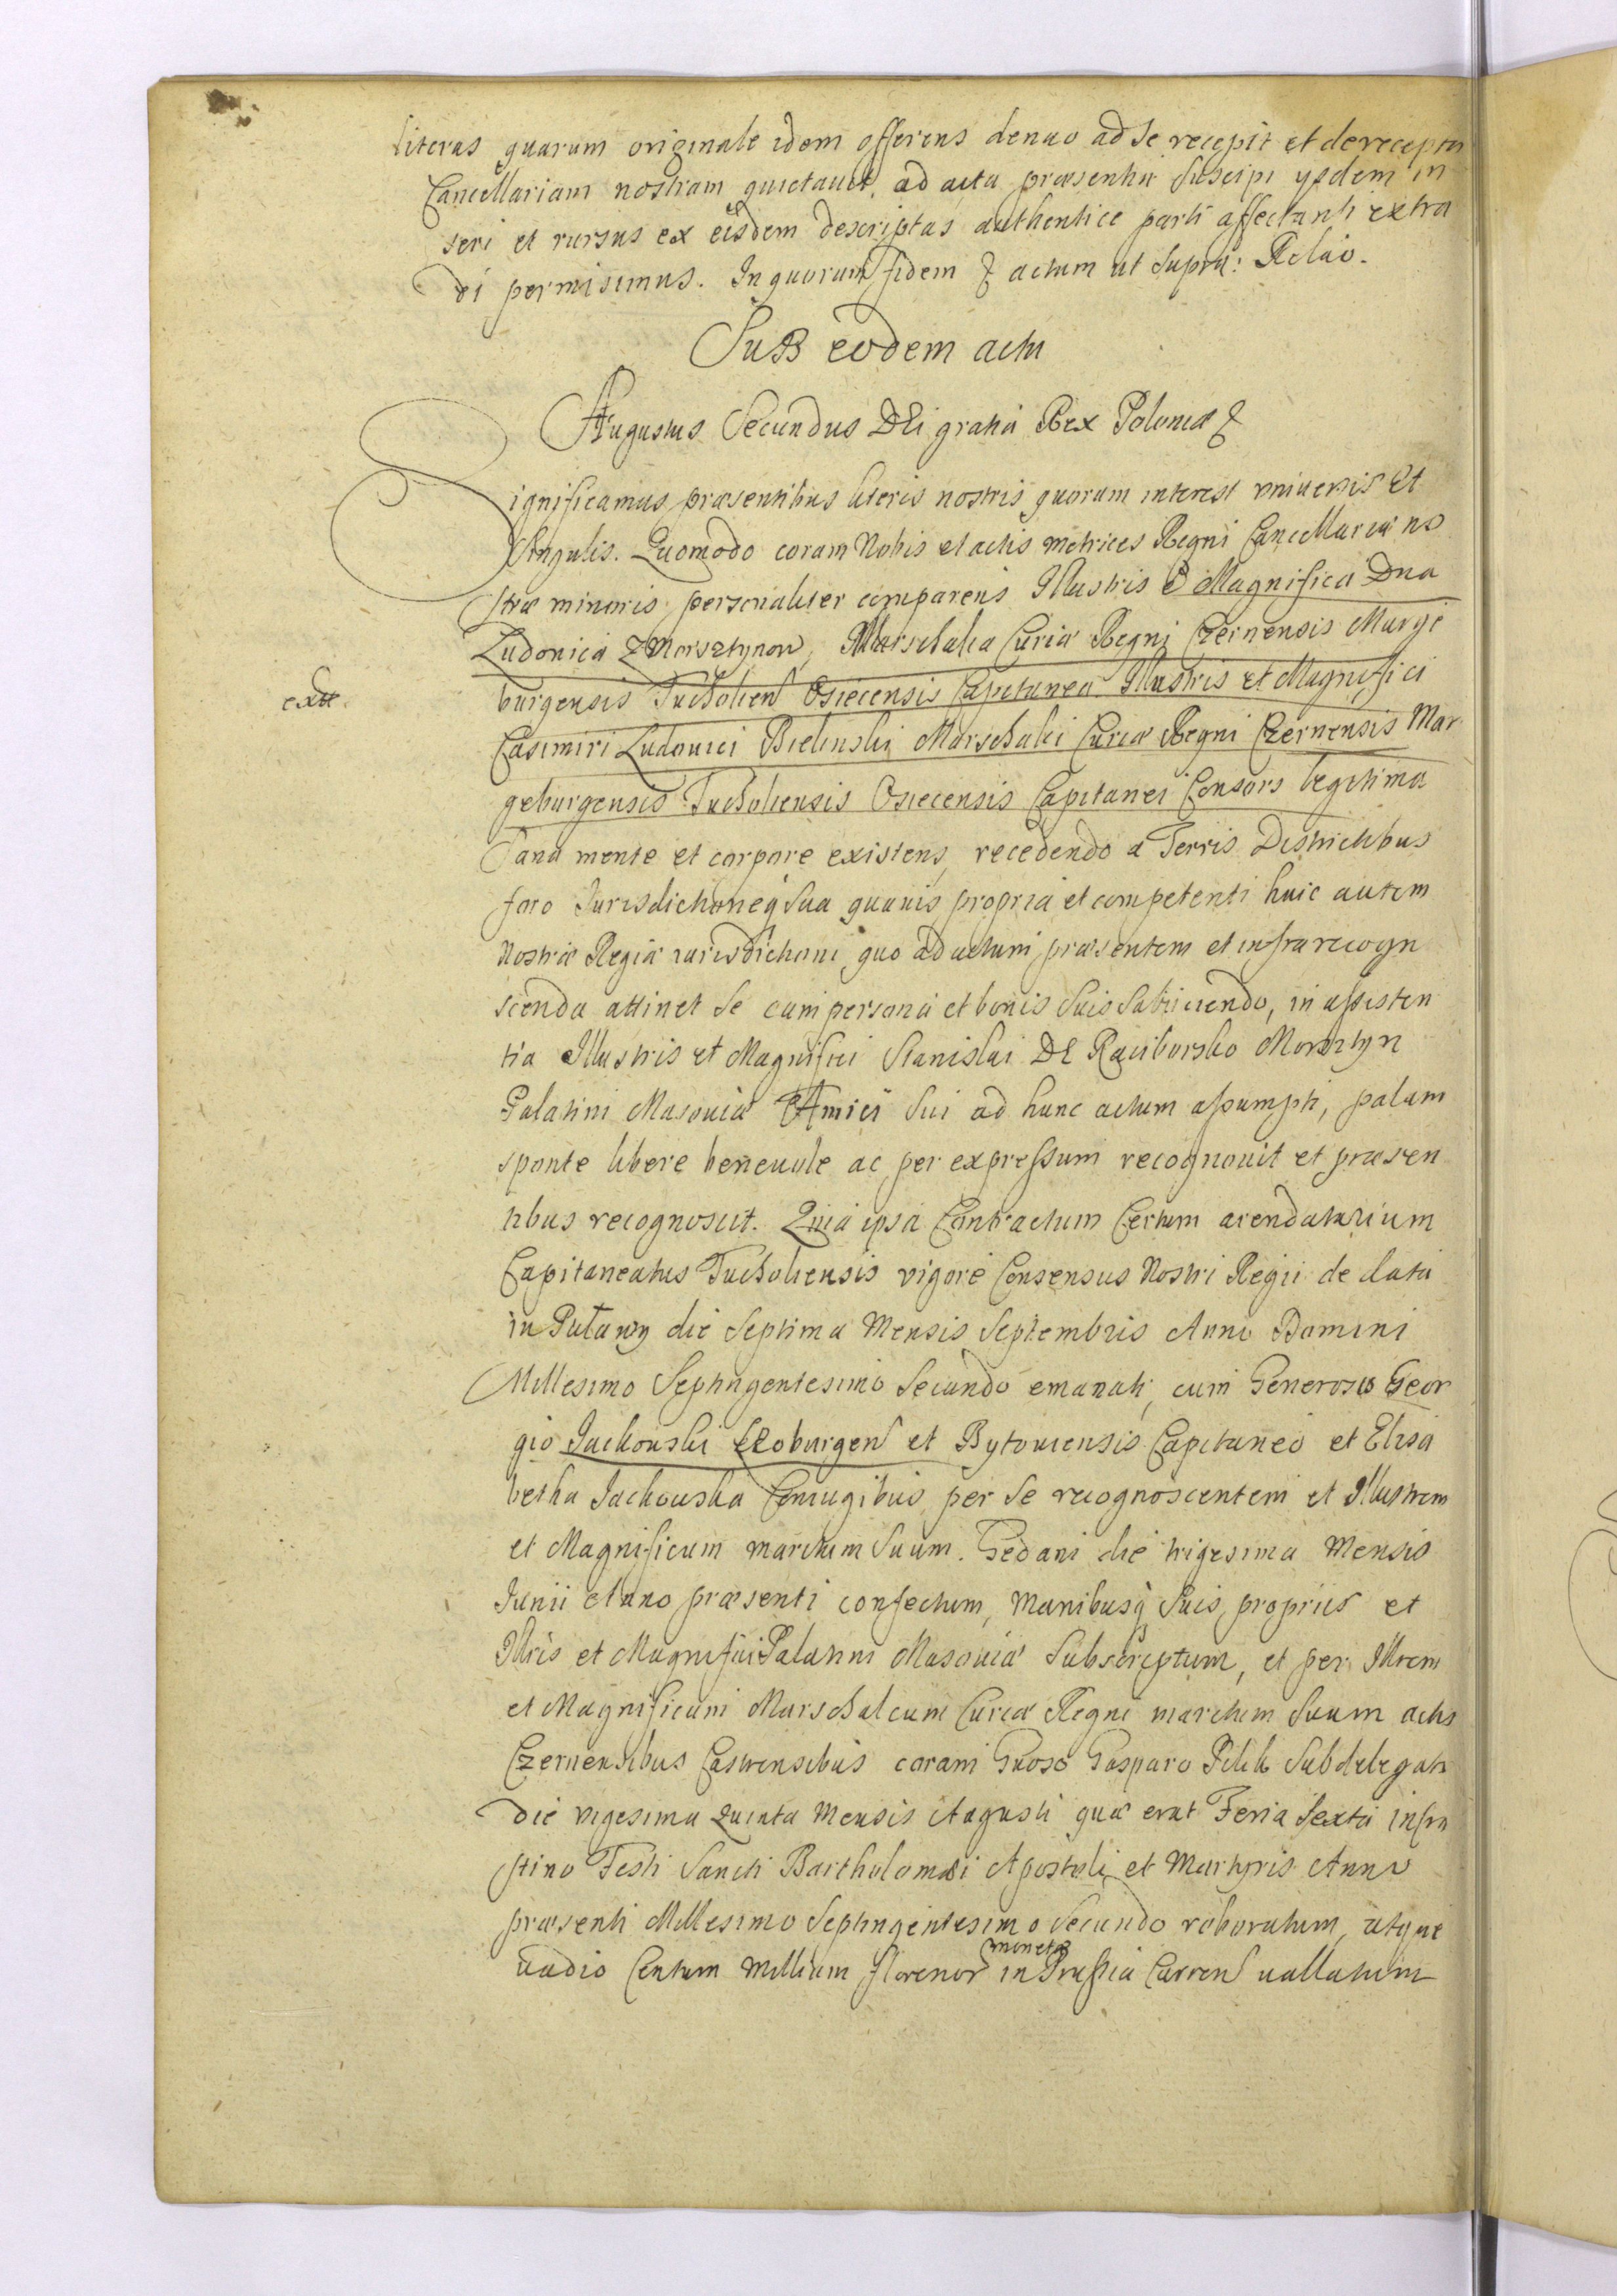 literas quarum originale idem offerens denuo ad se recepit et de receptis
Cancellariam nostram quietavit, ad acta præsentia suscipi ysdem in
seri et rursus ex eisdem descriptas authentice parti affectanti extra
di permisimus. In quorum fidem & actum ut supra: Relaio.
Sub eodem actu
Augustus Secundus DEi gratia Rex Poloniæ &
Significamus præsentibus literis nostris quorum interest universis Et
Singulis. Quomodo coram Nobis et actis metrices Regni Cancellariæ no
stræ minoris personaliter comparens Illustris et Magnifica Dna
Ludovica z Morsztynow, Marschalca Curiæ Regni Czernensis Marge
burgensis Tucholien Osiecensis Capitanea Illustris et Magnifici
exte.
Casimiri Ludovici Bielinski Marschalci Curiæ Regni Czernensis Mar
geburgensis Tucholiensis Osiecensis Capitanei Consors legitima
Sana mente et corpore existens, recedendo a Terris Districtibus
foro Jurisdictioneq sua quavis propria et competenti huic autem
Nostræ Regiæ iurisdictioni quo ad actum præsentem et infra recogn
scenda attinet se cum persona et bonis suis subiiciendo, in assisten
tia Illustris et Magnifici Stanislai DE Raciborsko Morsztyn
Palatini Masoviæ Amici sui ad hunc actum assumpti, palam
sponte libere benevole ac per expressum recognovit et præsen
tibus recognoscit. Quia ipsa Contractum Certum arendatarium
Capitaneatus Tucholiensis vigore Consensus Nostri Regii de data
in Putawy die Septima Mensis Septembris Anno Domini
Millesimo Septingentesimo Secundo emanati, cum Generosis Geor
gio Jackowski Łeoburgen et Bytoviensis Capitaneo et Elisa
betha Jackowska Coniugibus per se recognoscentem et Illustrem
et Magnificum maritum suum. Gedani die trigesima Mensis
Junii Anno præsenti confectum, Manibusq suis propriis et
Illris et Magnifici Palatini Masoviæ Subscriptum, et per Illrem
et Magnificum Marschalcum Curiæ Regni maritum suum actis
Czernensibus Castrensibus coram Gnoso Gasparo subdelegato
die vigesima Quinta Mensis Augusti quæ erat Feria Sexta
stino Festi Sancti Bartholomæi Apostoli et Martyris Anno
præsenti Millesimo Septingentesimo Secundo roboratum, atque
monetæ
vadio Centum Millium florenor in Prussia Curren vallatum